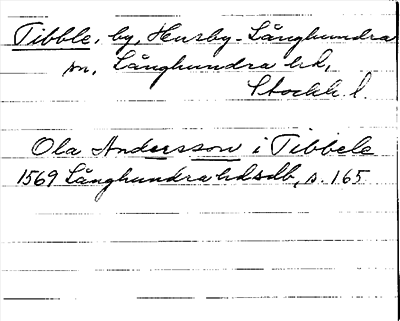 Tibble, by, Husby-Långhundra
sn, Långhundra hd,
Stockh. l.
Ola Andersson i Tibbele
1569 Långhundra hdsdb, s. 165